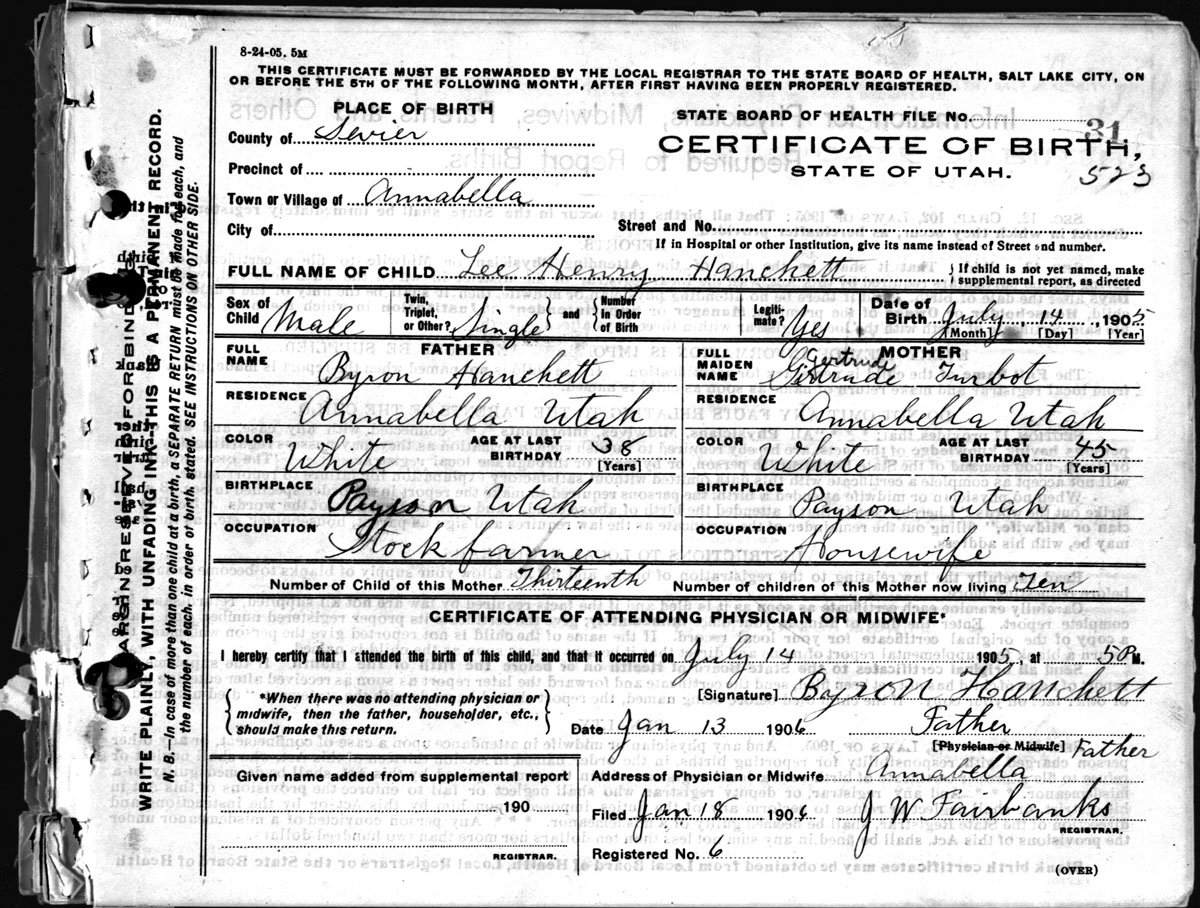 8-24-05. 5M
THIS CERTIFICATE MUST BE FORWARDED BY THE LOCAL REGISTRAR TO THE STATE BOARD OF HEALTH, SALT LAKE CITY, ON
OR BEFORE THE 5TH OF THE FOLLOWING MONTH, AFTER FIRST HAVING BEEN PROPERLY REGISTERED.
PLACE OF BIRTH
STATE BOARD OF HEALTH FILE No. 31
County of Sevier
CERTIFICATE OF BIRTH,
523
Precinct of
STATE OF UTAH.
Town or Village of Annabella
City of
Street and No.
If in Hospital or other Institution, give its name instead of Street and number.
FULL NAME OF CHILD Lee Henry Hanchett } If child is not yet named, make
supplemental report, as directed
Sex of Child Male
Twin, Triplet, or Other? Single } and { Number in Order of Birth
Legiti- mate? Yes
Date of Birth July 14, 1905
[Month] [Day] [Year]
FATHER
FULL NAME Byron Hanchett
RESIDENCE Annabella Utah
COLOR White AGE AT LAST BIRTHDAY 38 [Years]
BIRTHPLACE Payson Utah
OCCUPATION Stock farmer
MOTHER
Gertrude
FULL MAIDEN NAME Girtrude Turbot
RESIDENCE Annabella Utah
COLOR White AGE AT LAST BIRTHDAY 45 [Years]
BIRTHPLACE Payson Utah
OCCUPATION Housewife
Number of Child of this Mother Thirteenth Number of children of this Mother now living Ten
CERTIFICATE OF ATTENDING PHYSICIAN OR MIDWIFE*
I hereby certify that I attended the birth of this child, and that it occurred on July 14 1905, at 5 P M.
{ *When there was no attending physician or
midwife, then the father, householder, etc.,
should make this return. }
[Signature] Byron Hanchett
Date Jan 13 1906 Father
[Physician or Midwife] Father
Given name added from supplemental report
190
REGISTRAR.
Address of Physician or Midwife Annabella
Filed Jan 18 1906 J W Fairbanks
REGISTRAR.
Registered No. 6
(OVER)
MARGIN RESERVED FOR BINDING
WRITE PLAINLY, WITH UNFADING INK—THIS IS A PERMANENT RECORD.
N. B.—In case of more than one child at a birth, a SEPARATE RETURN must be made for each, and
the number of each, in order of birth, stated. SEE INSTRUCTIONS ON OTHER SIDE.